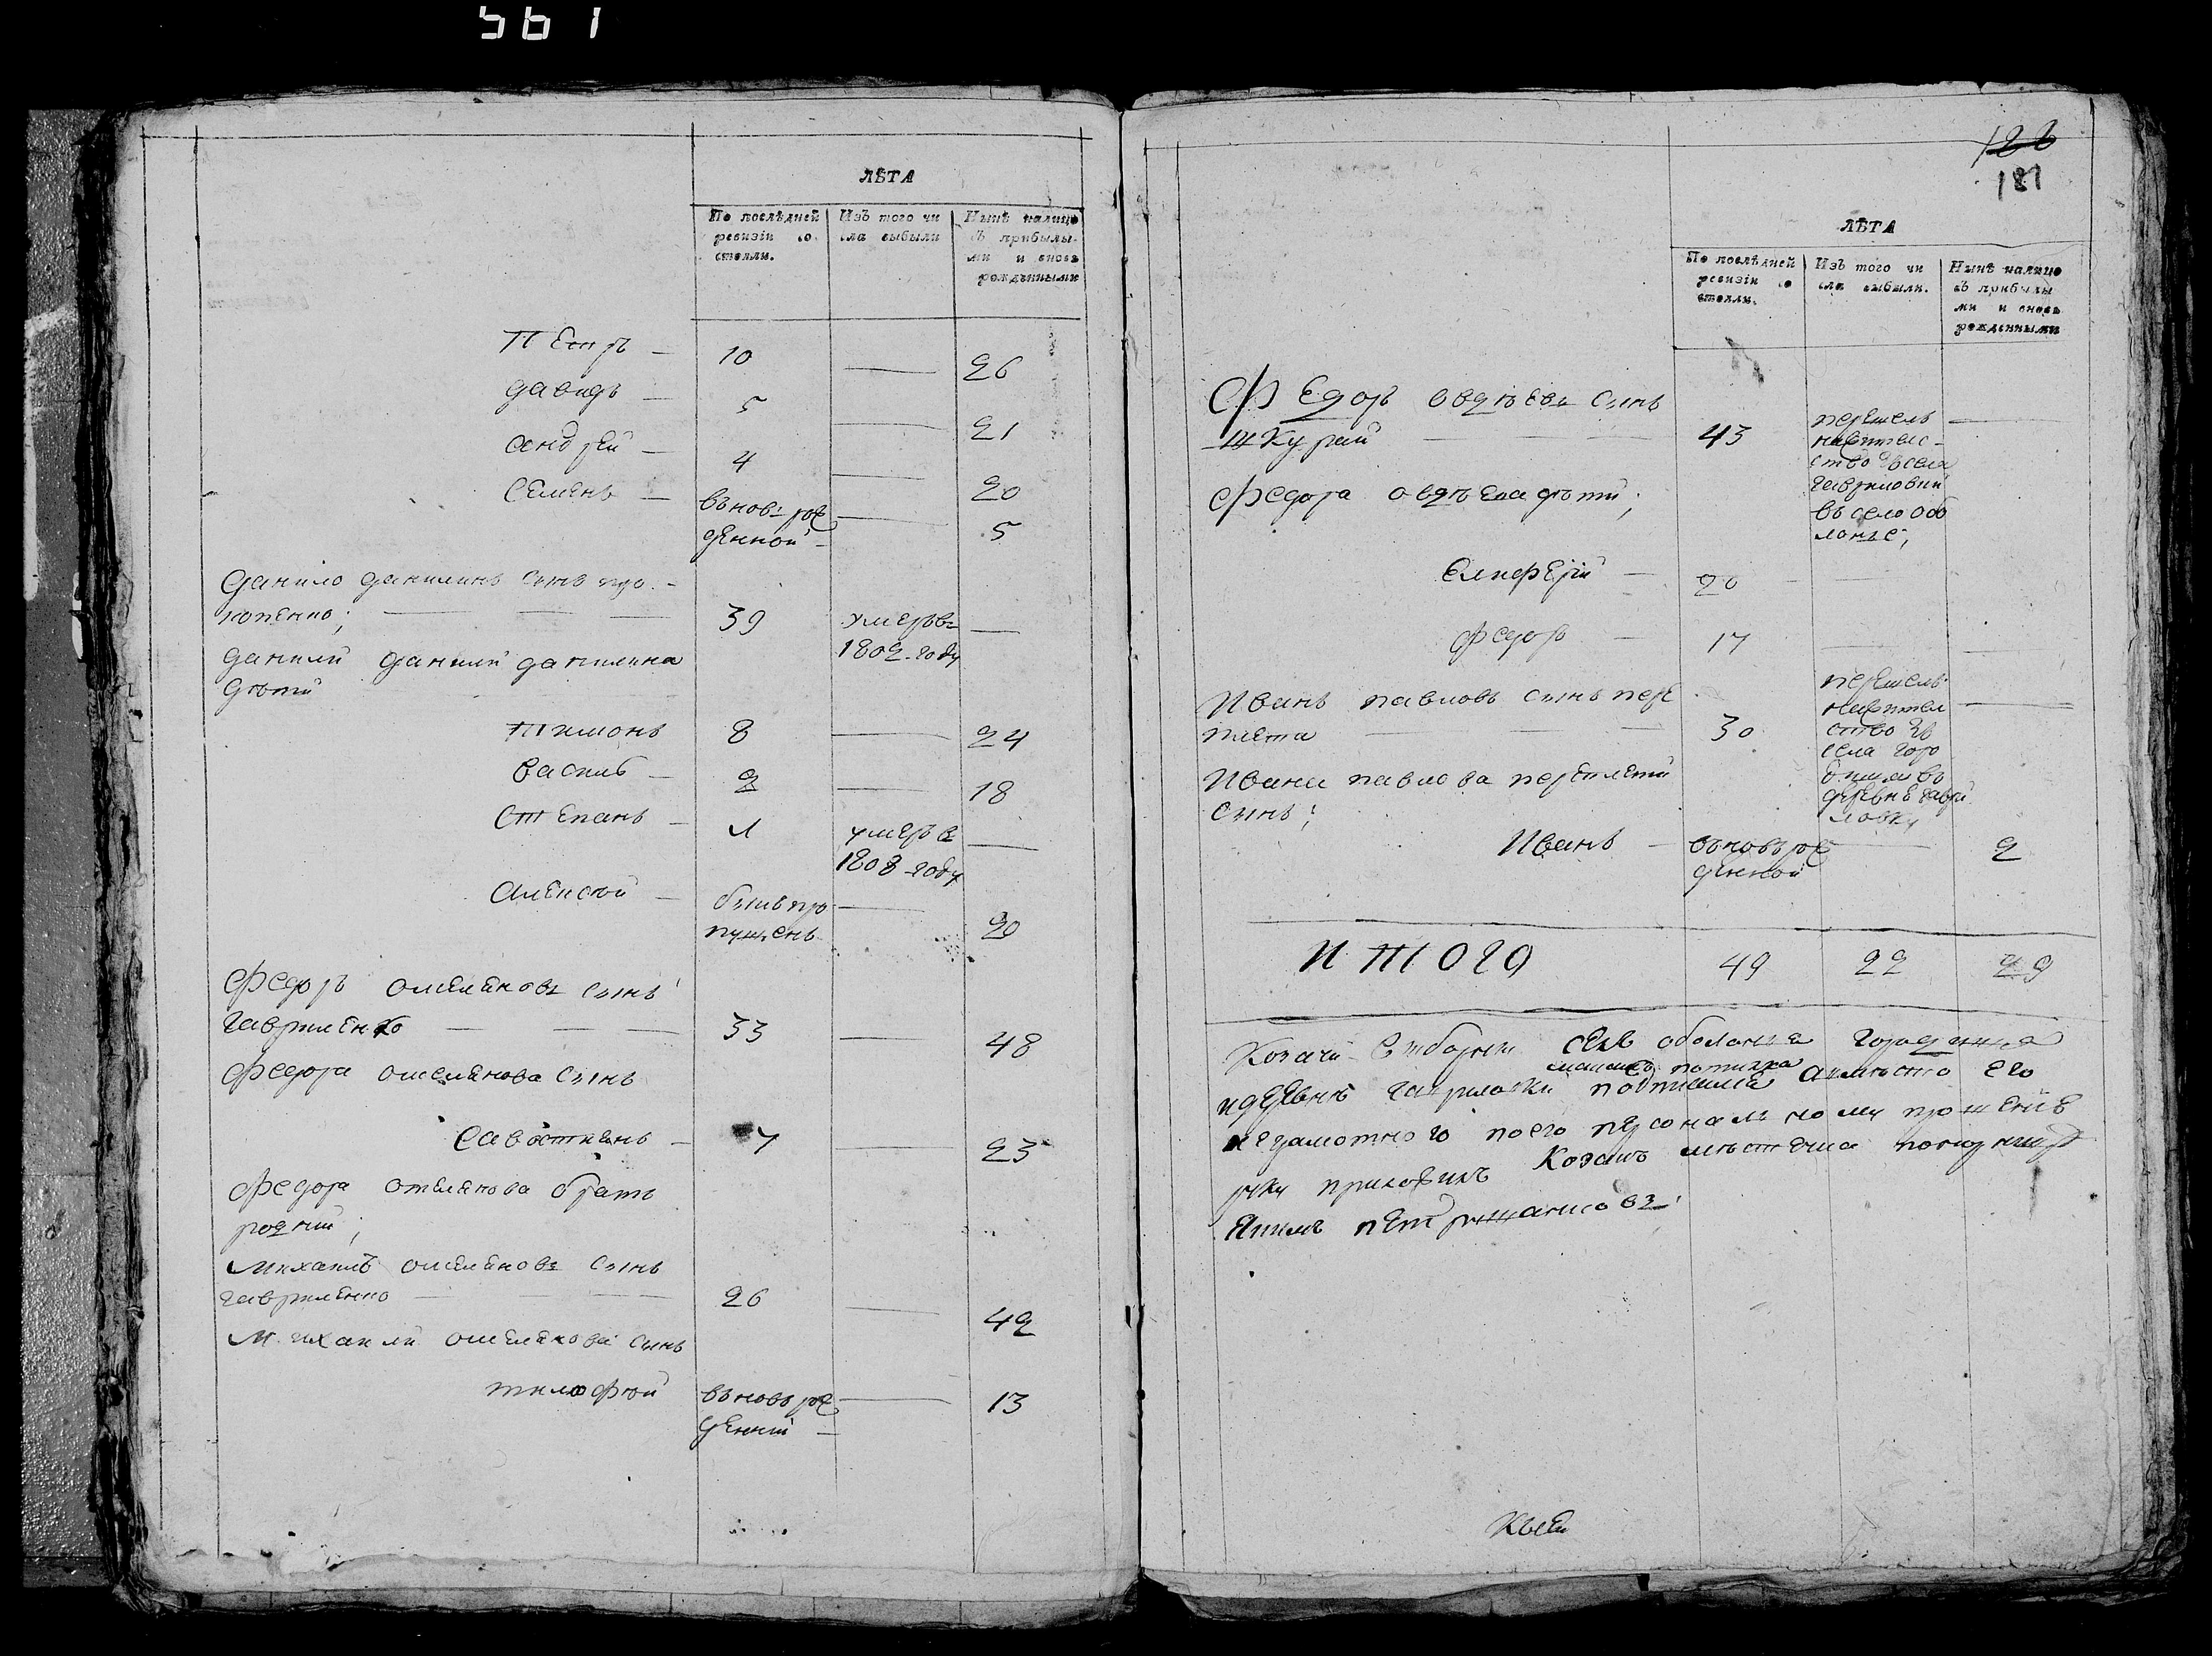 561
ЛѢТА
По послѣдней ревизіи со стояли.
Изъ того чи сла выбыли
Нынѣ налицо съ прибылы- ми и вновь рожденными
Петръ — 10 — 26
давидъ — 5 — 21
андрей — 4 — 20
Семенъ — вьновъ рож — 5
денной
данило данилинъ сынъ про-
копенко; — 39 умеръ въ —
1802 году
данили данили данилина
дѣти
Тимонъ 8 — 24
василь — 2 — 18
степанъ — 1 умеръ в —
1808 году
Алексѣй — былъ про — 20
пущенъ
Федоръ омеляновъ сынъ
гавриленко — 33 — 48
Федора омелянова сынъ
Савостиянъ — 7 — 23
Федора омелянова братъ
родний;
Михаилъ омеляновъ сынъ
гавриленко — 26 — 42
Михаили омелянова сынъ
тимофѣй вьновъ рож — 13
денний
188
181
ЛѢТА
По послѣдней ревизіи со стояли.
Изъ того чи сла выбыли.
Нынѣ налицо съ прибылы ми и вновь рожденными
Федоръ овдѣевъ сынъ
шкурай — 43 перешелъ —
нажител-
ство зъ села
гавриловки
въ село обо
лонье,
Федора овдѣева дѣти;
Елиферій — 20 —
Федоръ — 17 — —
Иванъ павловъ сынъ пере
плета — 30 перешелъ —
нажител
ство зъ
села горо
въ
деревнѣ гаври
ловку
Ивана павлова переплети
сынъ;
Иванъ — вьновъ рож — 2
денной
ИТОГО 49 22 29
Козачи селъ оболонья городища
идеревнѣ гавриловки авместо его
неграмотного поего персоналному прошенію
руку приложилъ Козакъ местечка
Якимъ